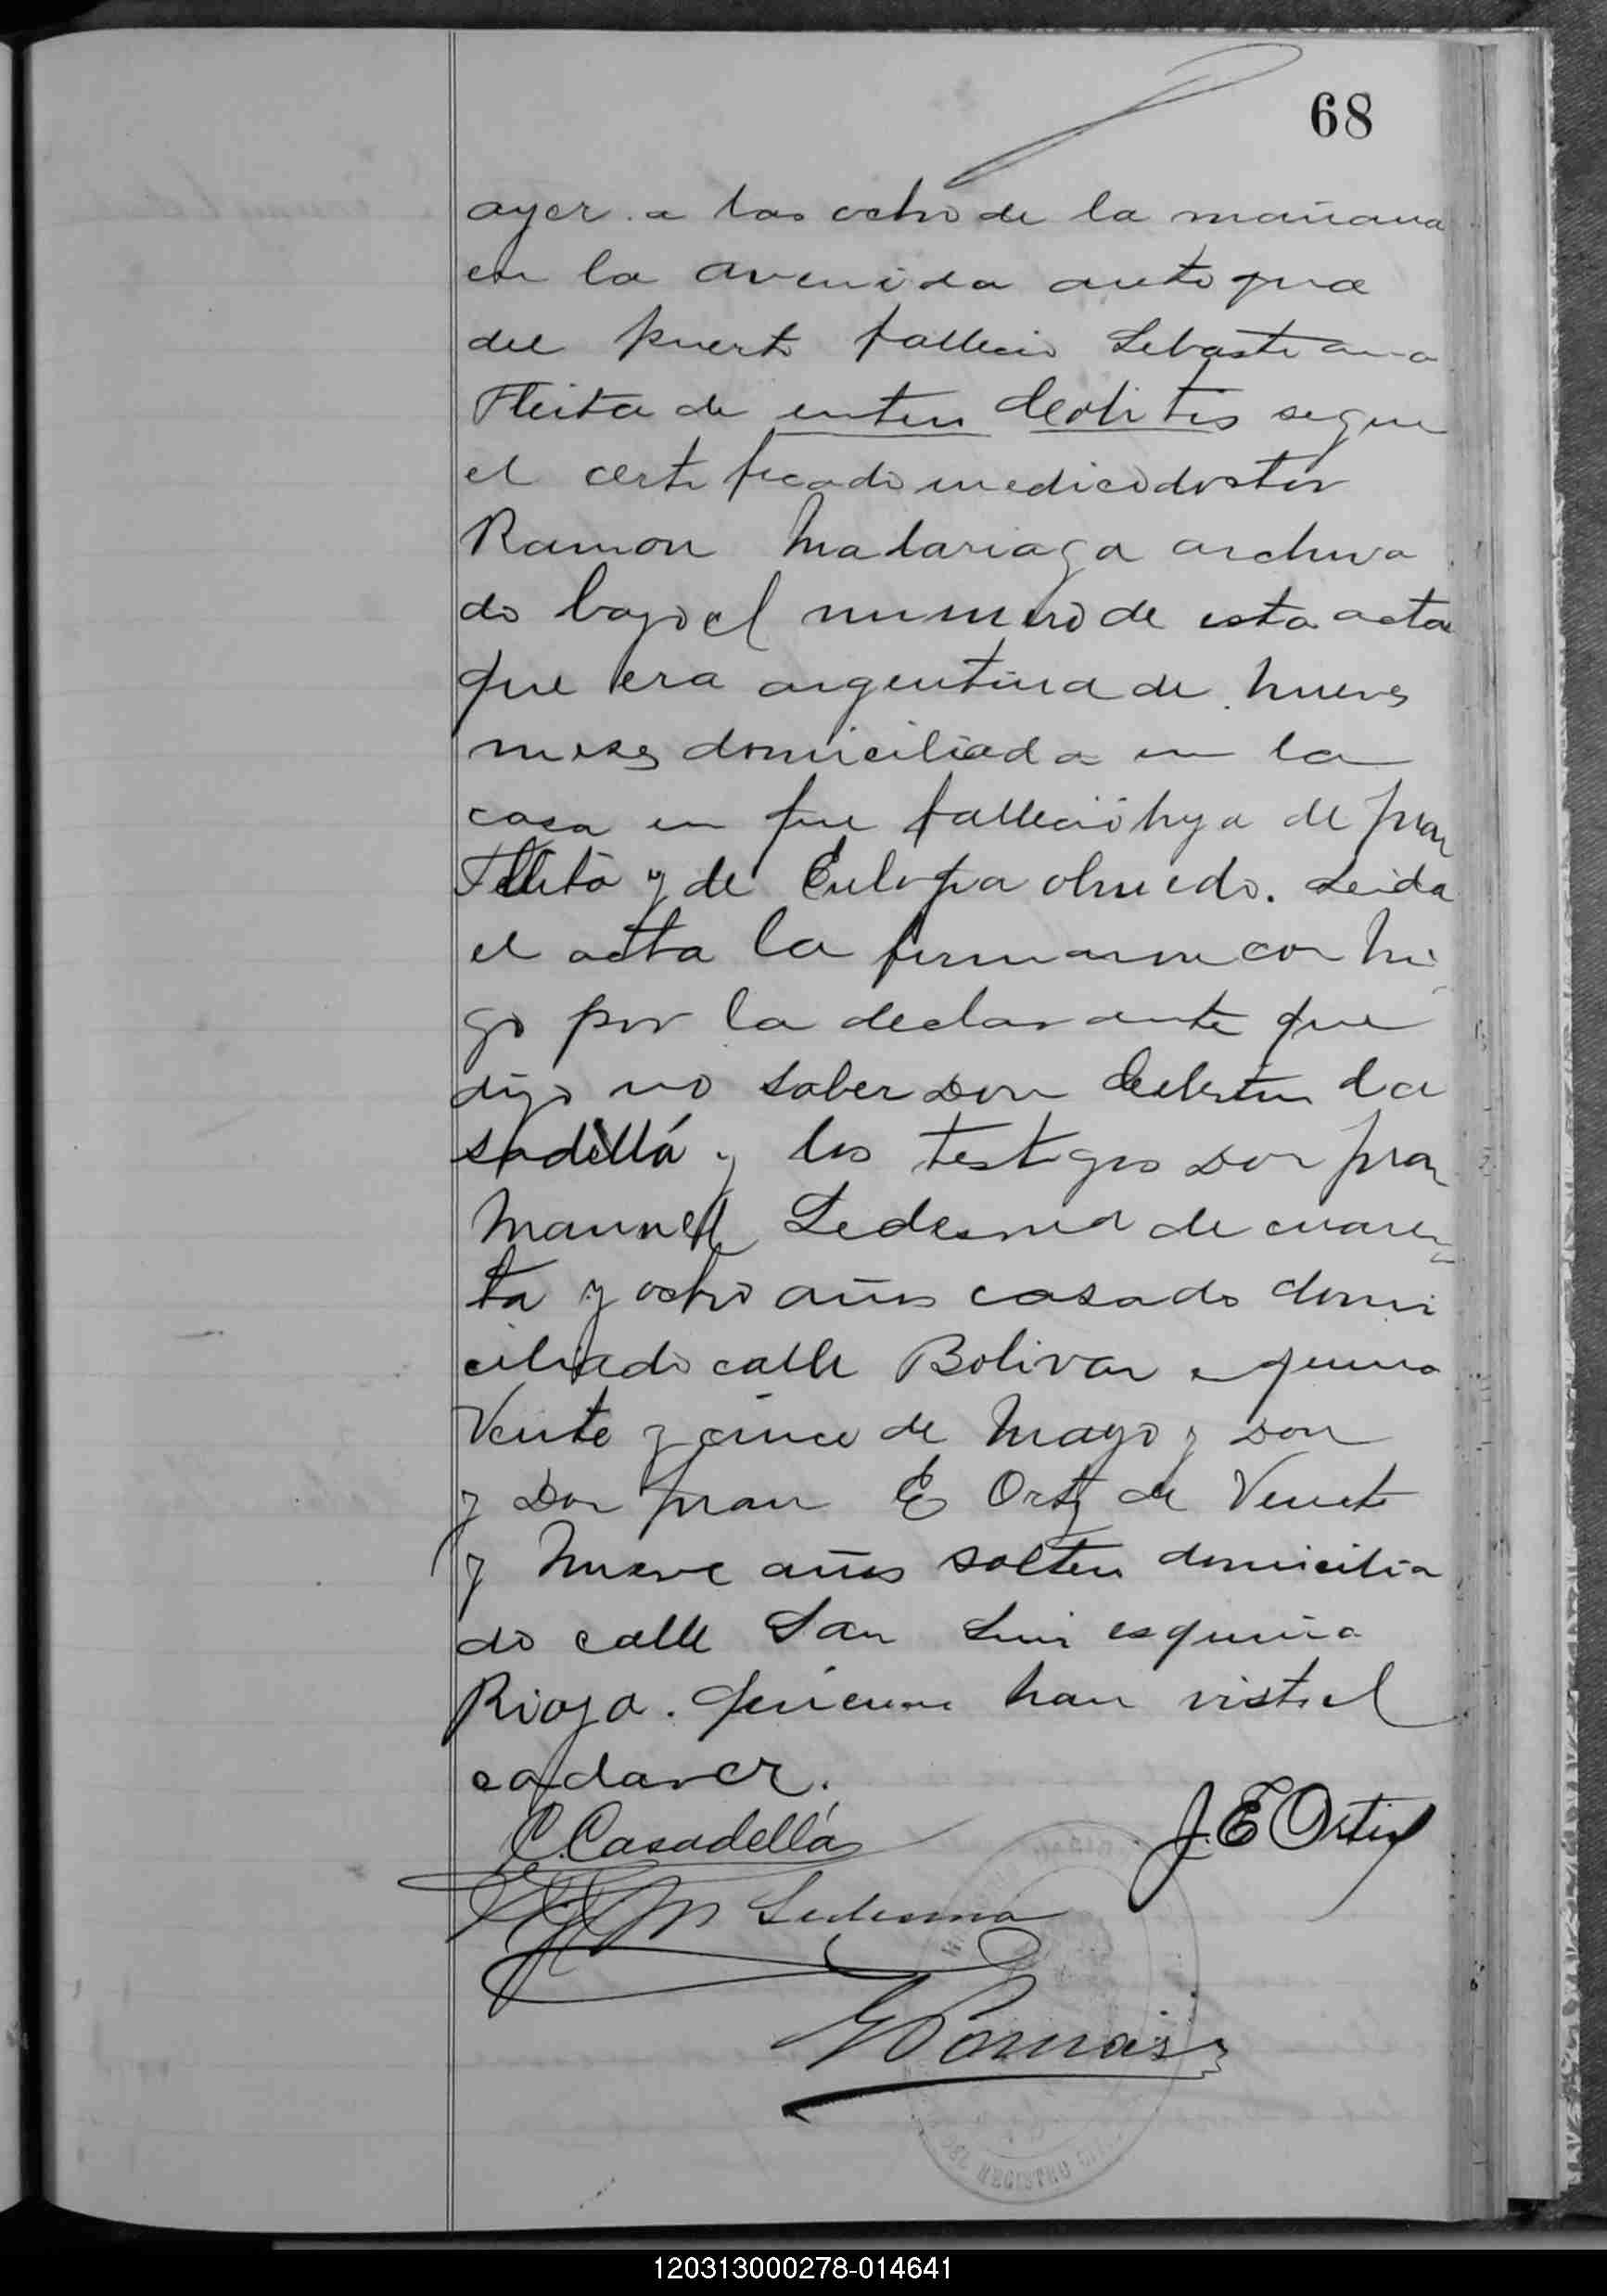 68
ayer a las ocho de la mañana
en la avenida antigua
del puerto fallecio Sebastiana
Fleita de entero colitis segun
el certificado medico doctor
Ramon Madariaga archiva
do bajo el numero de esta acta
que era argentina de nueve
meses domiciliada en la
casa en que fallecio hija de Juan
Fleita y de Eulogia Olmedo. Leida
el acta la firmaron conmi
go por la declarante que
dijo no saber Don Celestin Ca
sadellá y los testigos Don Juan
Manuel Ledesma de cuaren
ta y ocho años casado domi
ciliado calle Bolivar esquina
Veinte y cinco de Mayo y Don
y Don Juan E Ortiz de Veinte
y nueve años soltero domicilia
do calle San Luis esquina
Rioja. quienes han visto el
cadaver.
C. Casadellá
J. E Ortiz
M Ledesma
REGISTRO
120313000278-014641